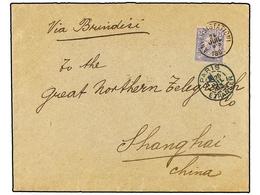 Via Brindisi
To the
Great Northern Telegraph
Co
Shanghai
China
PARIS